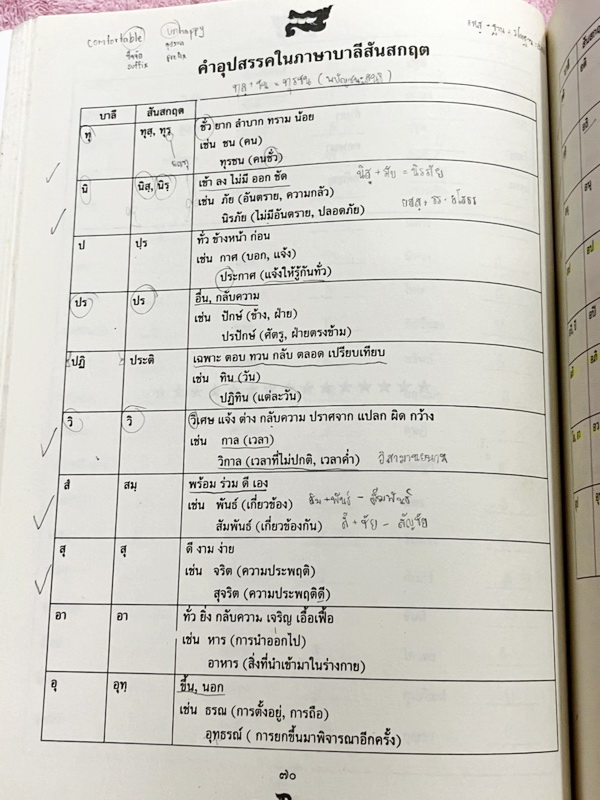 comfortable unhappy
suffix prefix
คำอุปสรรคในภาษาบาลีสันสกฤต
บาลี สันสกฤต
ทุ ทุสฺ, ทุรฺ ชั่ว ยาก ลำบาก ทราม น้อย
เช่น ชน (คน)
ทุรชน (คนชั่ว)
นิ นิสฺ, นิรฺ เข้า ลง ไม่มี ออก ชัด
เช่น ภัย (อันตราย, ความกลัว)
นิรภัย (ไม่มีอันตราย, ปลอดภัย)
ป ปฺร ทั่ว ข้างหน้า ก่อน
เช่น กาศ (บอก, แจ้ง)
ประกาศ (แจ้งให้รู้กันทั่ว)
ปร ปร อื่น, กลับความ
เช่น ปักษ์ (ข้าง, ฝ่าย)
ปรปักษ์ (ศัตรู, ฝ่ายตรงข้าม)
ปฏิ ประติ เฉพาะ ตอบ ทวน กลับ ตลอด เปรียบเทียบ
เช่น ทิน (วัน)
ปฏิทิน (แต่ละวัน)
วิ วิ วิเศษ แจ้ง ต่าง กลับความ ปราศจาก แปลก ผิด กว้าง
เช่น กาล (เวลา)
วิกาล (เวลาที่ไม่ปกติ, เวลาค่ำ)
สํ สมฺ พร้อม ร่วม ดี เอง
เช่น พันธ์ (เกี่ยวข้อง)
สัมพันธ์ (เกี่ยวข้องกัน)
สุ สุ ดี งาม ง่าย
เช่น จริต (ความประพฤติ)
สุจริต (ความประพฤติดี)
อา อา ทั่ว ยิ่ง กลับความ เจริญ เอื้อเฟื้อ
เช่น หาร (การนำออกไป)
อาหาร (สิ่งที่นำเข้ามาในร่างกาย)
อุ อุทฺ ขึ้น, นอก
เช่น ธรณ (การตั้งอยู่, การถือ)
อุทธรณ์ ( การยกขึ้นมาพิจารณาอีกครั้ง)
๗๐